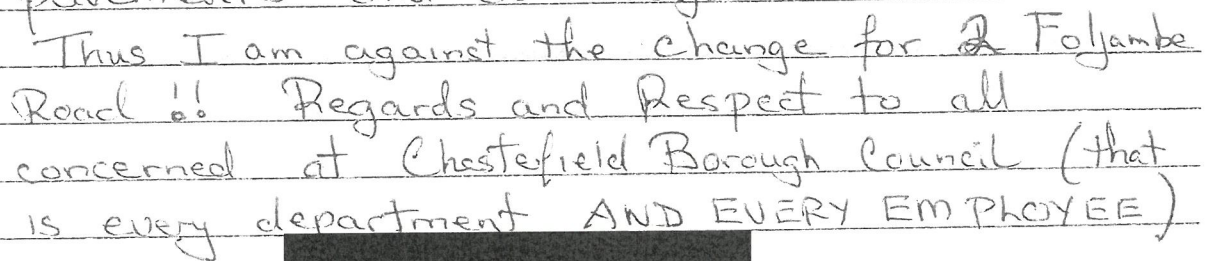 Thus I am against the change for 2 Foljambe
Road !! Regards and Respect to all
concerned at Chestefield Borough Council (that
is every department AND EVERY EMPLOYEE)